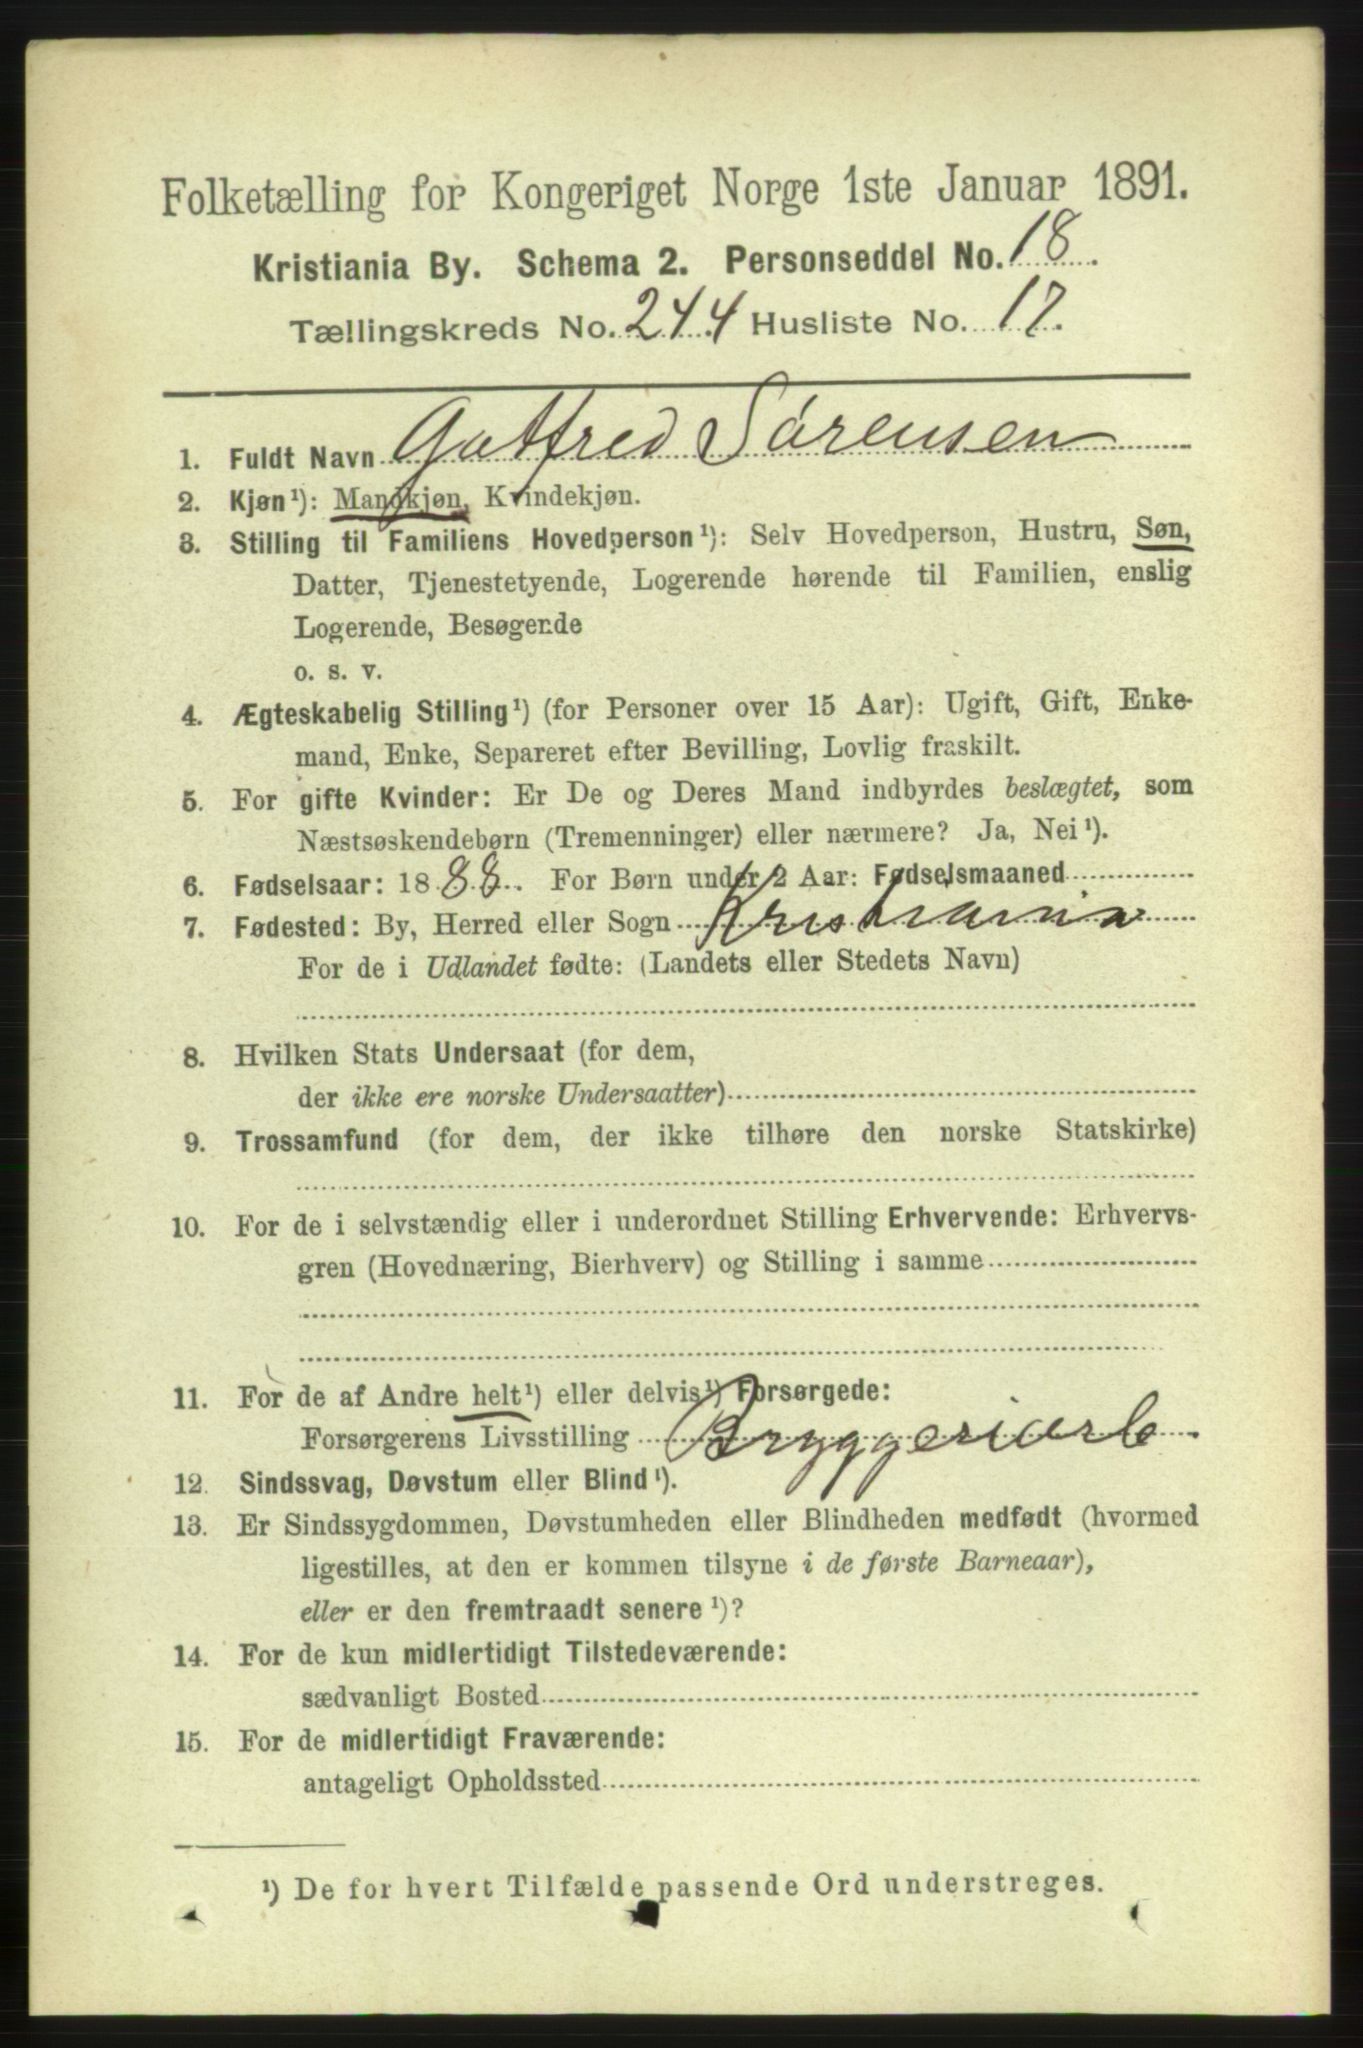 Folketælling for Kongeriget Norge 1ste Januar 1891.
Kristiania By. Schema 2. Personseddel No. 18.
Tællingskreds No. 244 Husliste No. 17.
1. Fuldt Navn Gotfred Sørensen
2. Kjøn¹): Mandkjøn, Kvindekjøn.
3. Stilling til Familiens Hovedperson¹): Selv Hovedperson, Hustru, Søn,
Datter, Tjenestetyende, Logerende hørende til Familien, enslig
Logerende, Besøgende
o. s. v.
4. Ægteskabelig Stilling¹) (for Personer over 15 Aar): Ugift, Gift, Enke-
mand, Enke, Separeret efter Bevilling, Lovlig fraskilt.
5. For gifte Kvinder: Er De og Deres Mand indbyrdes beslægtet, som
Næstsøskendebørn (Tremenninger) eller nærmere? Ja, Nei¹).
6. Fødselsaar: 1888. For Børn under 2 Aar: Fødselsmaaned
7. Fødested: By, Herred eller Sogn Kristiania
For de i Udlandet fødte: (Landets eller Stedets Navn)
8. Hvilken Stats Undersaat (for dem,
der ikke ere norske Undersaatter)
9. Trossamfund (for dem, der ikke tilhøre den norske Statskirke)
10. For de i selvstændig eller i underordnet Stilling Erhvervende: Erhvervs-
gren (Hovednæring, Bierhverv) og Stilling i samme
11. For de af Andre helt¹) eller delvis¹) Forsørgede:
Forsørgerens Livsstilling Bryggeriarb.
12. Sindssvag, Døvstum eller Blind¹).
13. Er Sindssygdommen, Døvstumheden eller Blindheden medfødt (hvormed
ligestilles, at den er kommen tilsyne i de første Barneaar),
eller er den fremtraadt senere¹)?
14. For de kun midlertidigt Tilstedeværende:
sædvanligt Bosted
15. For de midlertidigt Fraværende:
antageligt Opholdssted
¹) De for hvert Tilfælde passende Ord understreges.